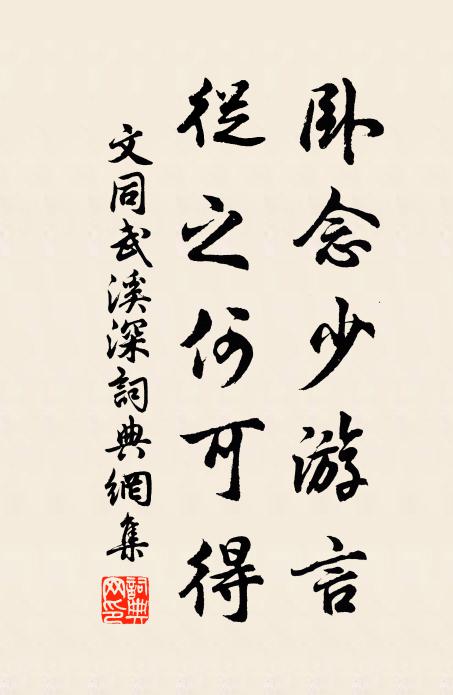 卧念少游言
從之何可得
文同武溪深詞典網集
詞典網印